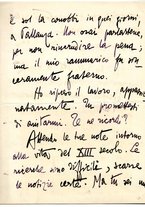 E sol la conobbi in quei giorni,
a Pallanza. Non osai parlartene,
per non rincrudire la pena;
ma il mio rammarico fu sin
ceramente fraterno.
Ho ripreso il lavoro, appassio
natamente. Tu promettesti
di aiutarmi. Te ne ricordi?
Attendo le tue note intorno
alla vita del XIII secolo. Le
ricerche sono difficili, scarse
le notizie certe. Ma tu sei un